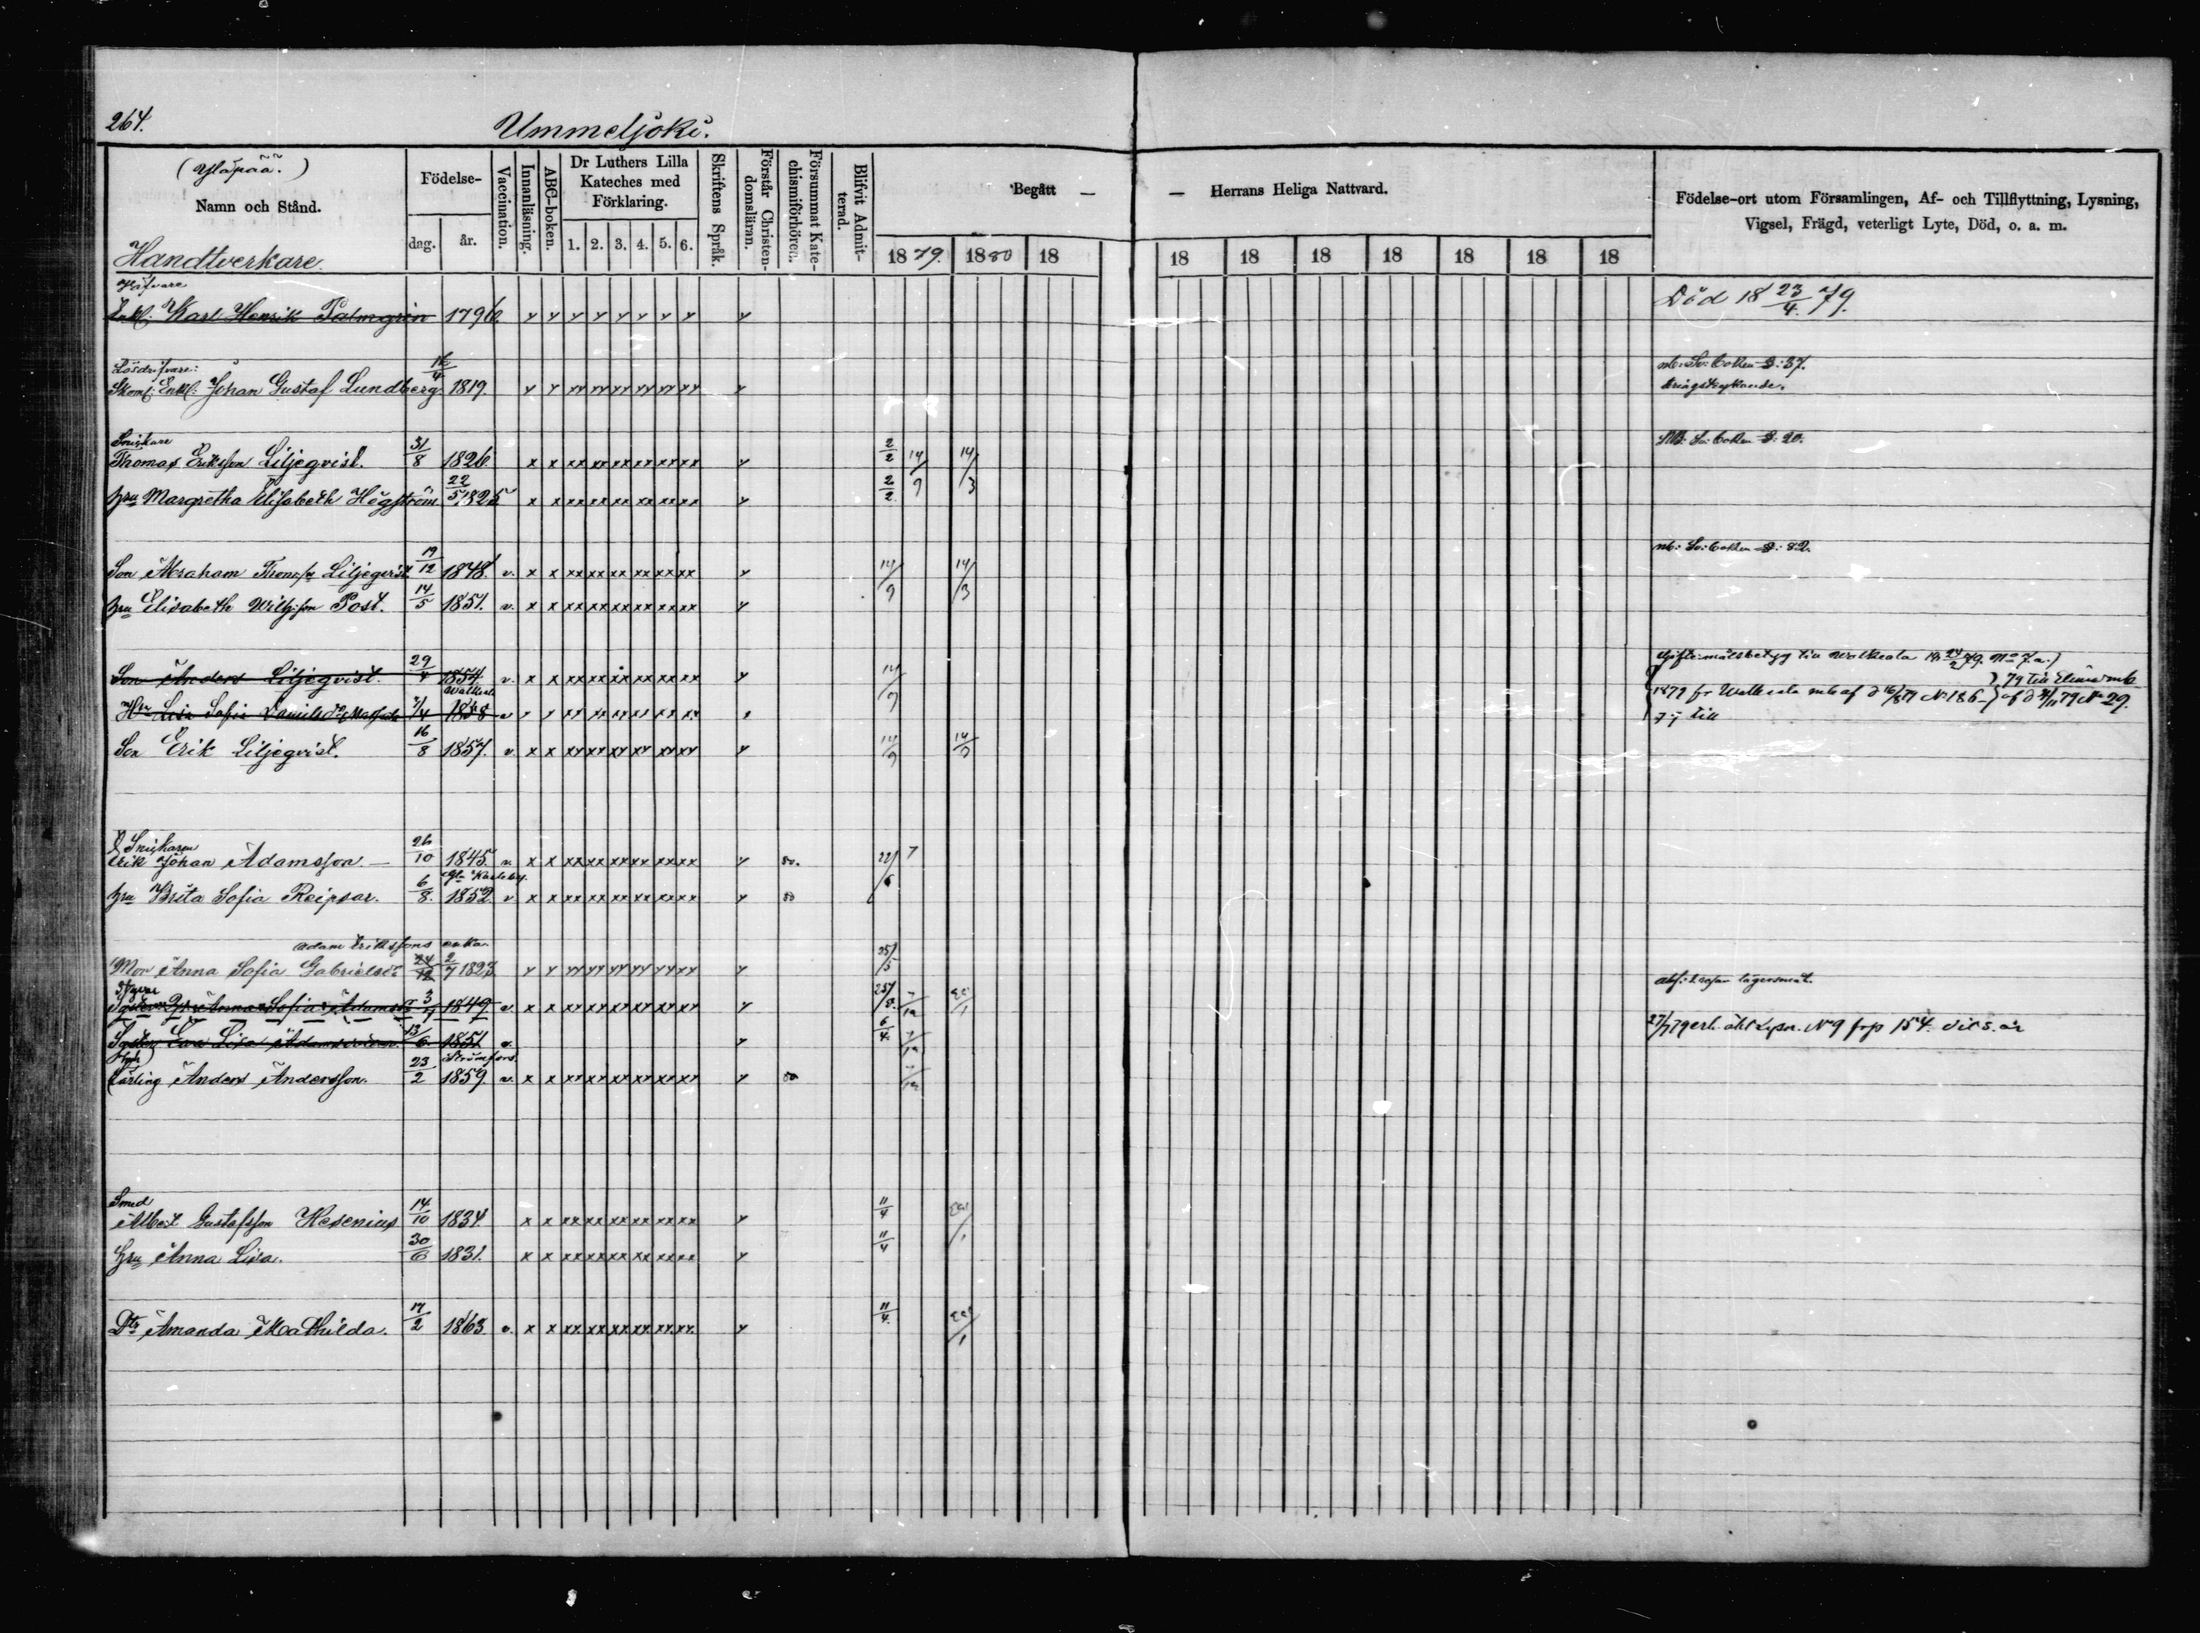 264.
Ummeljoki.
(Yläpää.)
Namn och Stånd.
Födelse-
dag.
år.
Vaccination.
Innanläsning.
ABC-boken.
Dr Luthers Lilla
Kateches med
Förklaring.
1. 2. 3. 4. 5. 6.
Skriftens Språk.
Förstår Christen-
domsläran.
Försummat Kate-
chismiförhören.
Blifvit Admit-
terad.
Begått — — Herrans Heliga Nattvard.
1879. 1880 18 18 18 18 18 18 18 18
Födelse-ort utom Församlingen, Af- och Tillflyttning, Lysning,
Vigsel, Frägd, veterligt Lyte, Död, o. a. m.
Handtverkare.
Enkl. Karl Henrik Palmgrén 1796. v v v v v v v v v Död 18 23/4 79.
Lösdrifvare: 16/4
Skom. Enkl. Johan Gustaf Lundberg. 1819. v v vv vv vv vv vv vv v
Snickare
Thomas Eriksson Liljeqvist. 31/8 1826. x x xx xx xx xx xx xx v 2/2 14/9 14/3
hru Margretha Elisabeth Högström 22/5 1825 x x xx xx xx xx xx xx v 2/2
Son Abraham Thomss Liljeqvist 19/12 1848. v. x x xx xx xx xx xx xx v 14/9 14/3
hru Elisabeth Post. 14/5 1851. v. x x xx xx xx xx xx xx v
Son Anders Liljeqvist. 29/4 1854. v. x x xx xx xx xx xx xx v 14/9 Giftermålsbetyg till Walkeala 18 24/2 79. No 7.a.)
Walkeala
Hru Lisa Sofia 1858 v 1879 fr Walkeala mb af d 16/8 79 No 186 79 till Elimä mb af d 21/11 79 No 29.
Son Erik Liljeqvist. 16/8 1857. v. x x xx xx xx xx xx xx v 14/9 14/9
Snickaren
Erik Johan Adamsson. — 26/10 1845. v. x x xx xx xx xx xx xx v 80. 22/6 7
hru Brita Sofia Reipsar. 6/8. 1852. v x x xx xx xx xx xx xx v 80
Adam Erikssons enka.
Mor Anna Sofia Gabrielsdr 2/7 1823 v v vv vv vv vv vv vv v 25/5
Anna Sofia Adamsdr 3/7 1849 v. x x xx xx xx xx xx xx v 25/5
Syster Eva Lisa Adamsdr 13/6 1851 v. v 6/4
Strömfors.
Lärling Anders Andersson. 23/2 1859 v. x x xx xx xx xx xx xx v 80
Smed
Albert Gustafsson Hesenius 14/10 1834. x x xx xx xx xx xx xx v 11/4
hru Anna Lisa. 30/6 1831. x x xx xx xx xx xx xx v 11/4
Dtr Amanda Mathilda. 17/2 1863 v. x x xx xx xx xx xx xx v 11/4